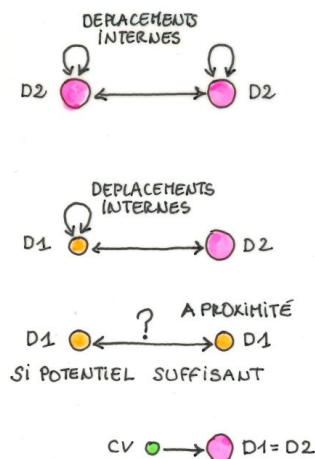 DEPLACEMENTS
INTERNES
D2 D2
DEPLACEMENTS
INTERNES
D1 D2
A PROXIMITÉ
D1 ? D1
SI POTENTIEL SUFFISANT
CV D1=D2